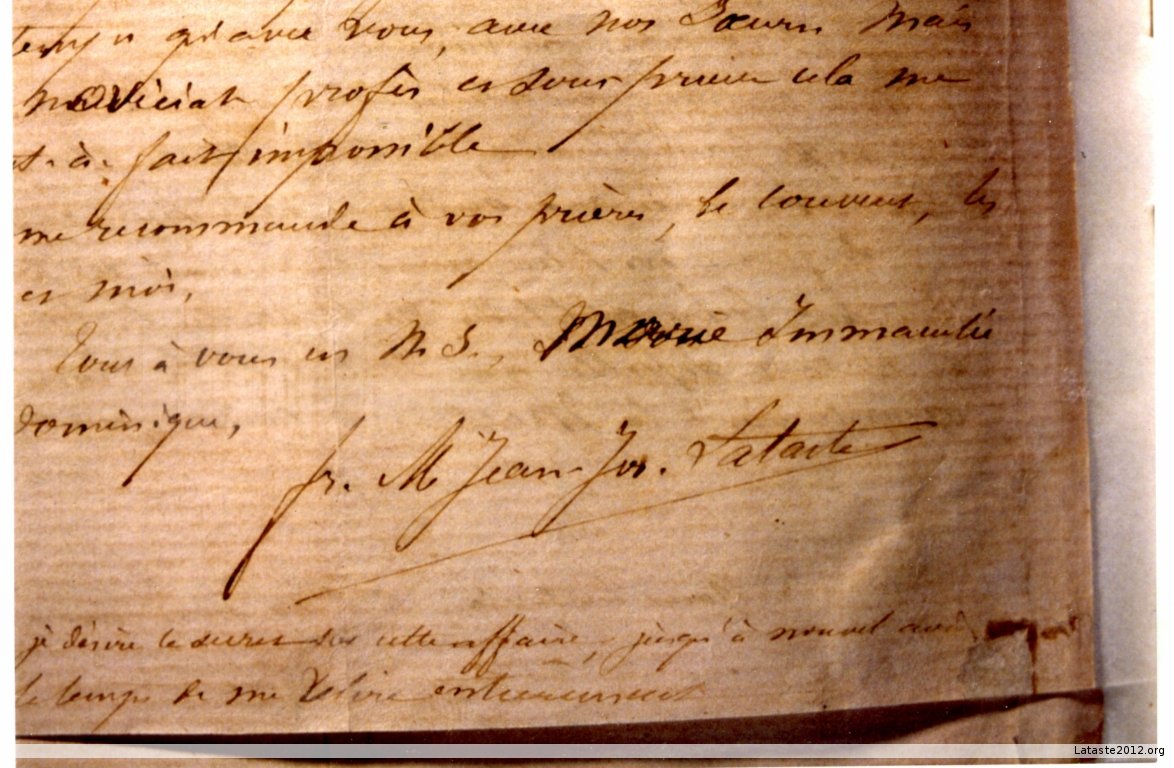 temps qu'avec vous, avec nos Sœurs Mais
noviciat profès et sous prieur cela me
t-à-fait impossible
me recommande à vos prières, le couvent, les
et moi,
Tout à vous en N. S., Marie Immaculée
dominique,
fr. M Jean-Jos. Lataste
je désire le secret sur cette affaire, jusqu'à nouvel avis,
le temps de me entièrement
Lataste2012.org